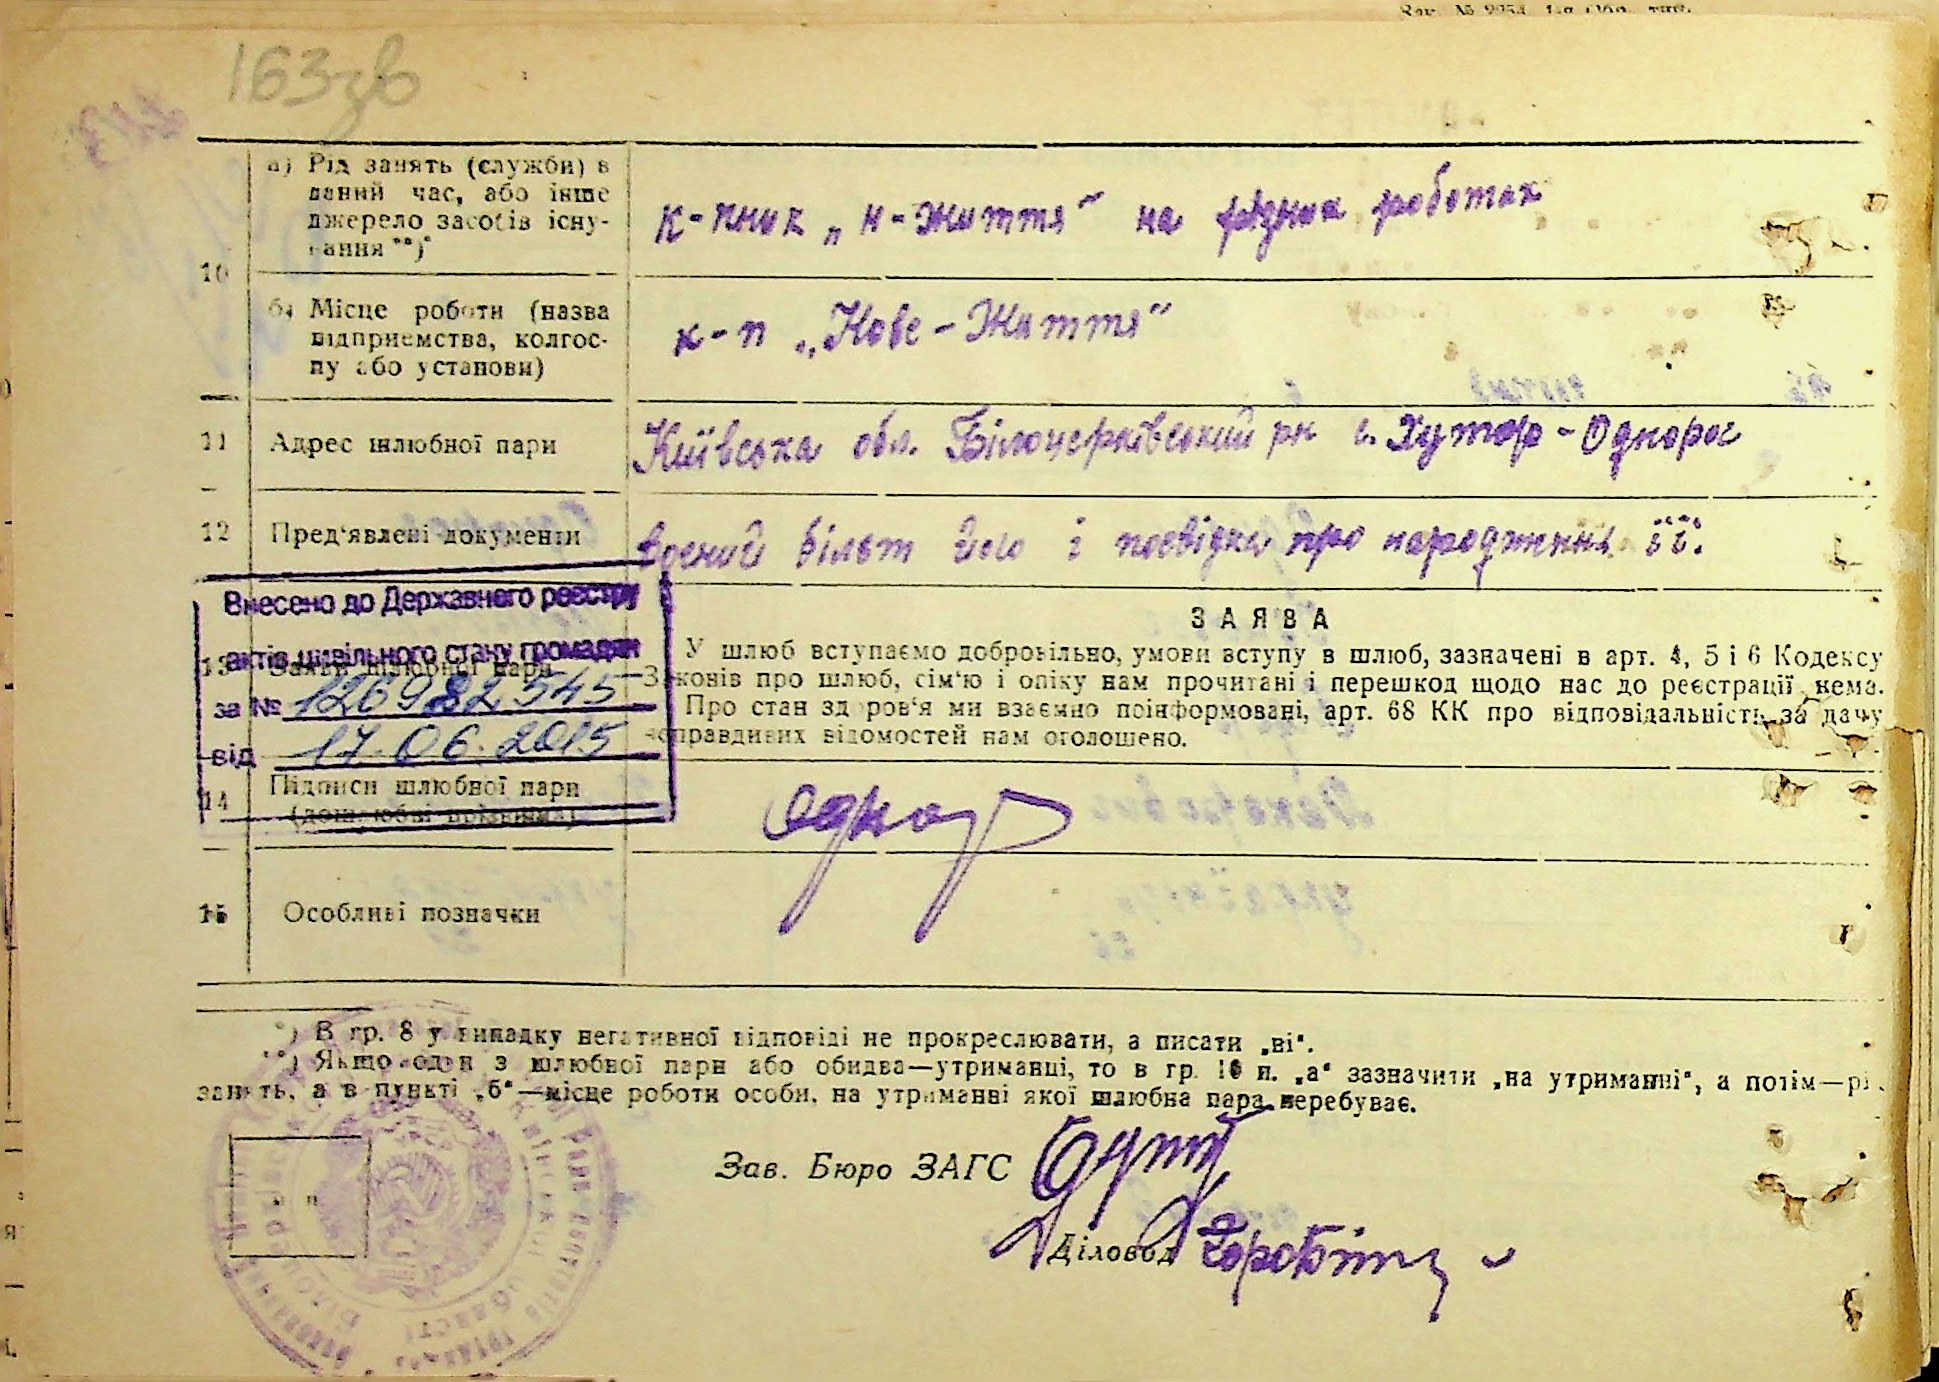 Зак. № 2954. 1-а Обл. тип.
163зв
10
а) Рід занять (служби) в
даний час, або інше
джерело засобів існу-
вання **)
к-пник „н-життя" на різних роботах
б) Місце роботи (назва
підприємства, колгос-
пу або установи)
к-п „Нове-Життя"
11 Адрес шлюбної пари
Київська обл. Білоцерківський рн с. Хутор-Однорог
12 Пред'явлені документи
воений білєт його і посвідка про народження її.
Внесено до Державного реєстру
актів цивільного стану громадян
за № 126982545
від 17.06.2015
13 Заява шлюбної пари
ЗАЯВА
У шлюб вступаємо добровільно, умови вступу в шлюб, зазначені в арт. 4, 5 і 6 Кодексу
Законів про шлюб, сім'ю і опіку нам прочитані і перешкод щодо нас до реєстрації нема.
Про стан здоров'я ми взаємно поінформовані, арт. 68 КК про відповідальність за дачу
неправдивих відомостей нам оголошено.
14 Підписи шлюбної пари
(дошлюбні прізвища)
15 Особливі позначки
*) В гр. 8 у випадку негативної відповіді не прокреслювати, а писати „ні".
**) Якщо один з шлюбної пари або обидва—утриманці, то в гр. 10 п. „а" зазначити „на утриманні", а потім—рі
занять, а в пункті „б"—місце роботи особи, на утриманні якої шлюбна пара перебуває.
Зав. Бюро ЗАГС
Діловод